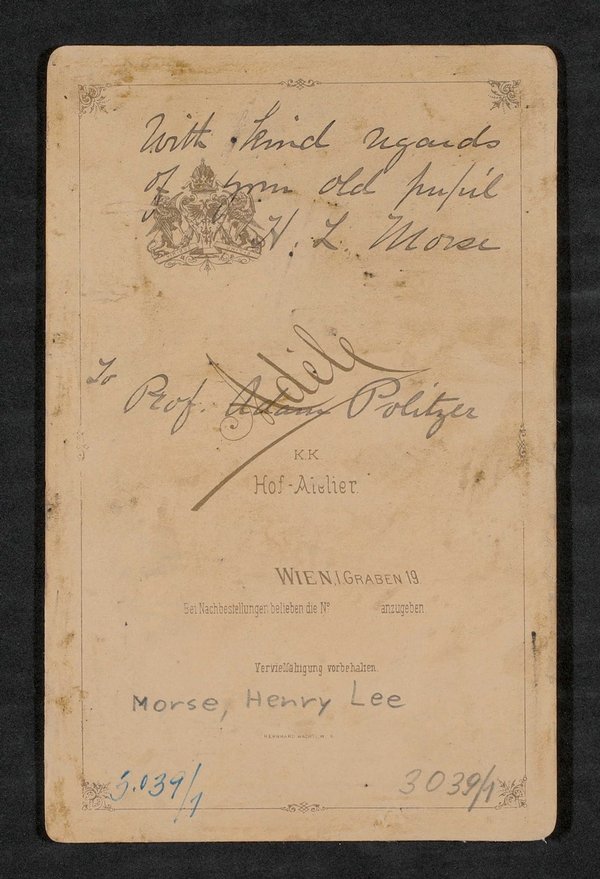 With kind regards
of your old pupil
H. L. Morse
To
Prof. Adam Politzer
Adèle
K.K.
Hof-Atelier.
WIEN, I GRABEN 19.
Bei Nachbestellungen belieben die No anzugeben.
Vervielfältigung vorbehalten.
Morse, Henry Lee
BERNHARD WACHTL, W
3.039/1
3039/1